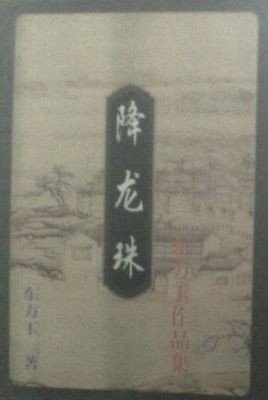 降龙珠
东方玉作品集
东方玉 著